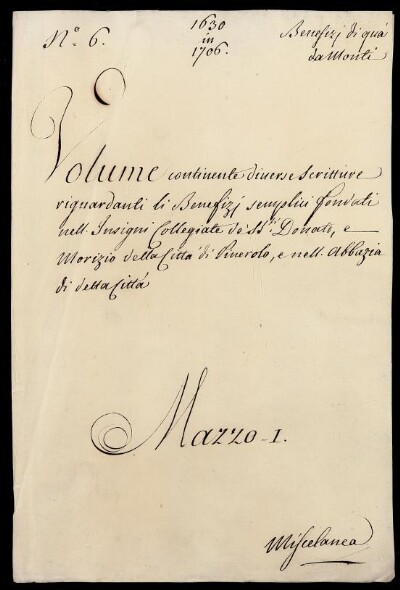 N.° 6.
1630
in
1706.
Benefizj di quà
da Monti
Volume continente diverse scritture
riguardanti li Benefizj semplici fondati
nell. Insigni Collegiate de' SS.ti Donato, e
Morizio della Città di Pinerolo, e nell. Abbazia
di detta Città
Mazzo 1.
Miscelanea